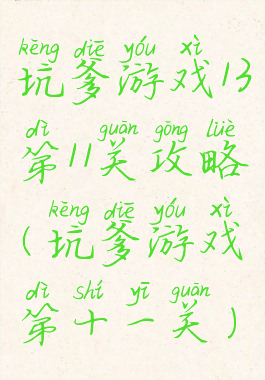 kēng diē yóu xì
坑爹游戏13
dì guān gōng lüè
第11关攻略
kēng diē yóu xì
(坑爹游戏
dì shí yī guān
第十一关)